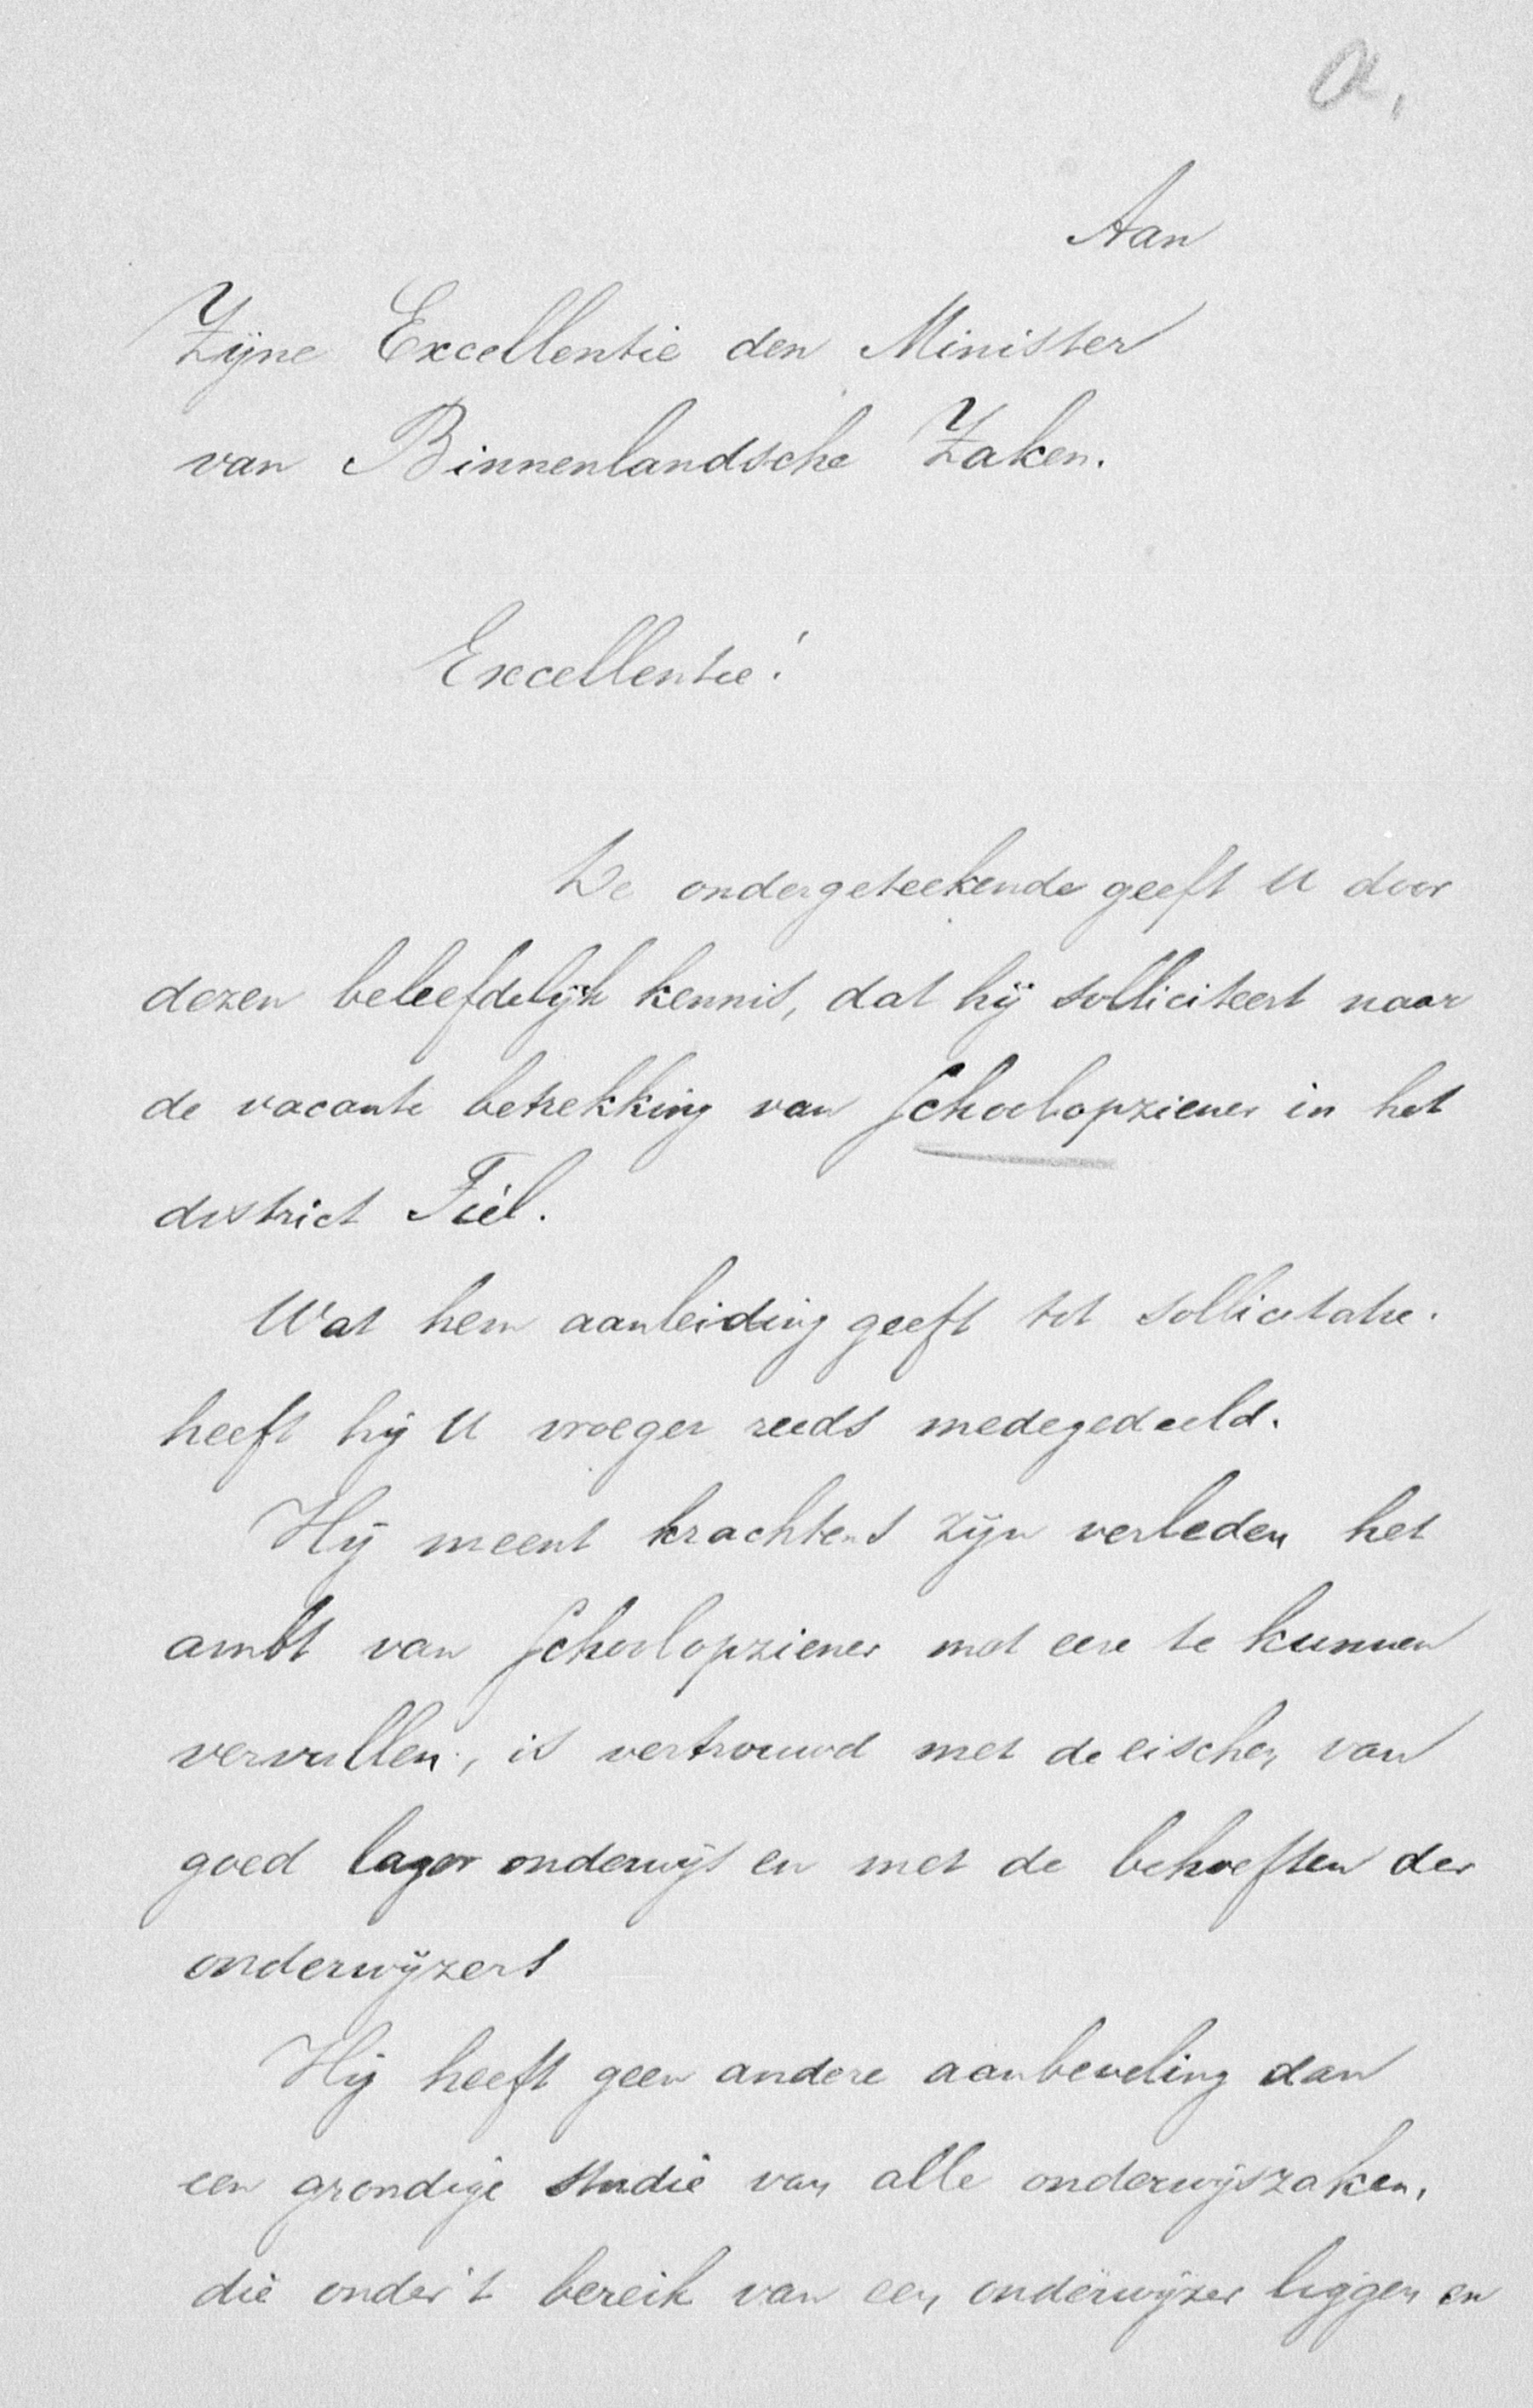 a.
Aan
Zijne Excellentie den Minister
van Binnenlandsche Zaken.
Excellentie!
De ondergeteekende geeft U door
dezen beleefdelijk kennis, dat hij solliciteert naar
de vacante betrekking van Schoolopziener in het
district Tiel.
Wat hem aanleiding geeft tot sollicitatie.
heeft hij U vroeger reeds medegedeeld.
Hij meent krachtens zijn verleden het
ambt van Schoolopziener met eere te kunnen
vervullen, is vertrouwd met de eischen van
goed lager onderwijs en met de behoeften der
onderwijzers
Hij heeft geen andere aanbeveling dan
een grondige studie van alle onderwijszaken,
die onder 't bereik van een onderwijzer liggen en